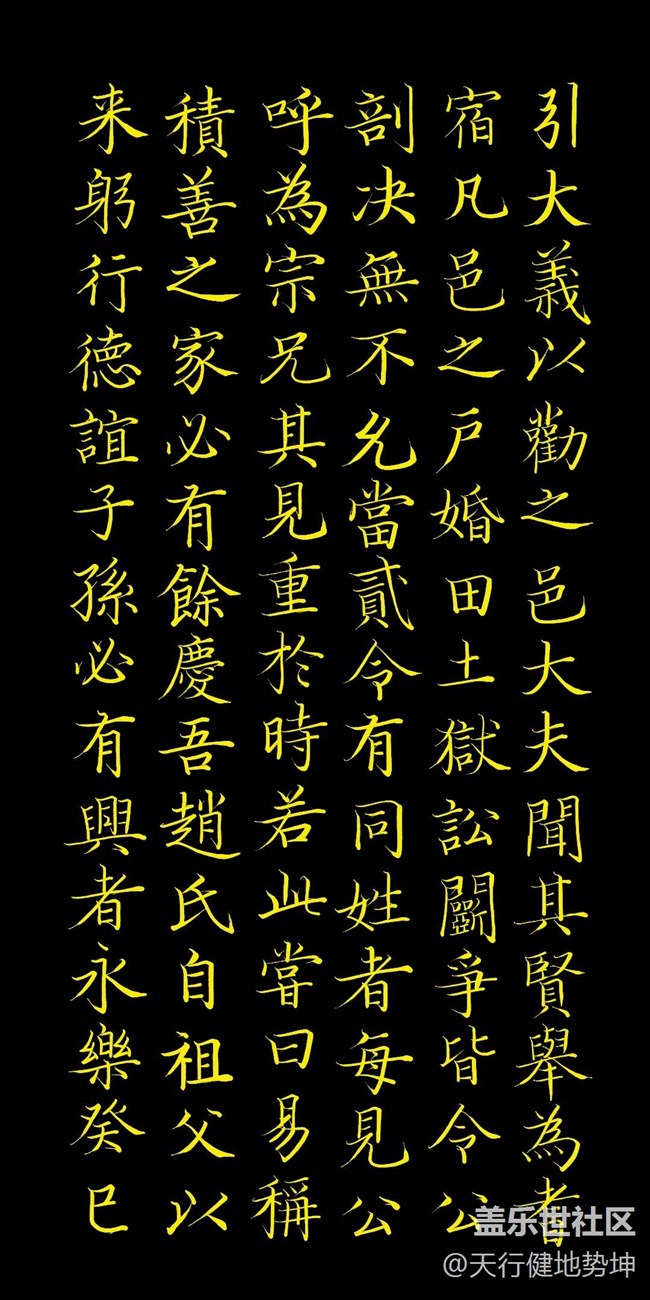 引大義以勸之邑大夫聞其賢舉為者
宿凡邑之戶婚田土獄訟鬭爭皆令公
剖决無不允當貳令有同姓者每見公
呼為宗兄其見重於時若此嘗曰易稱
積善之家必有餘慶吾趙氏自祖父以
来躬行德誼子孫必有興者永樂癸巳
盖乐世社区
@天行健地势坤